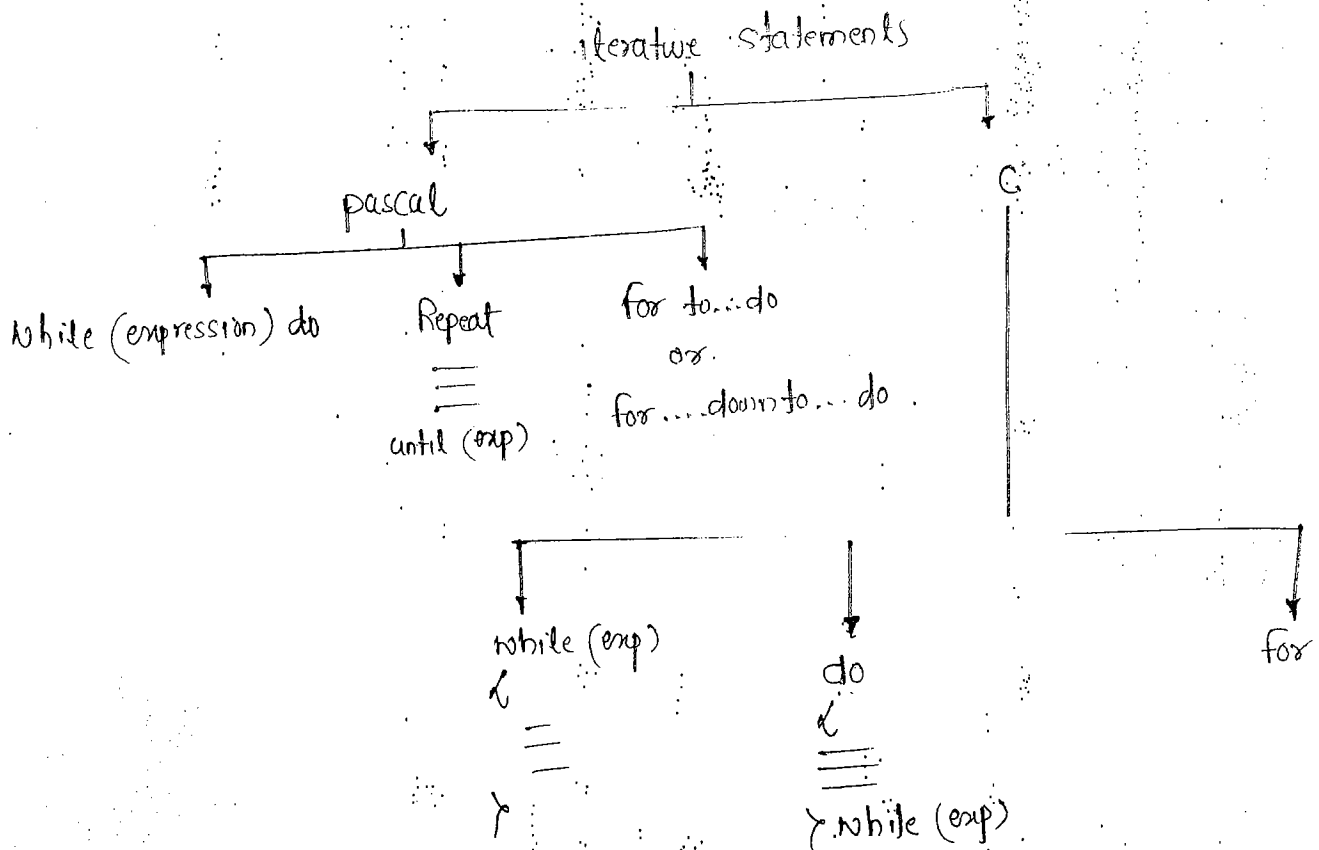 iterative statements
pascal
C
while (expression) do
Repeat
until (exp)
for to...do
or.
for....downto... do.
while (exp)
{
}
do
{
} while (exp)
for